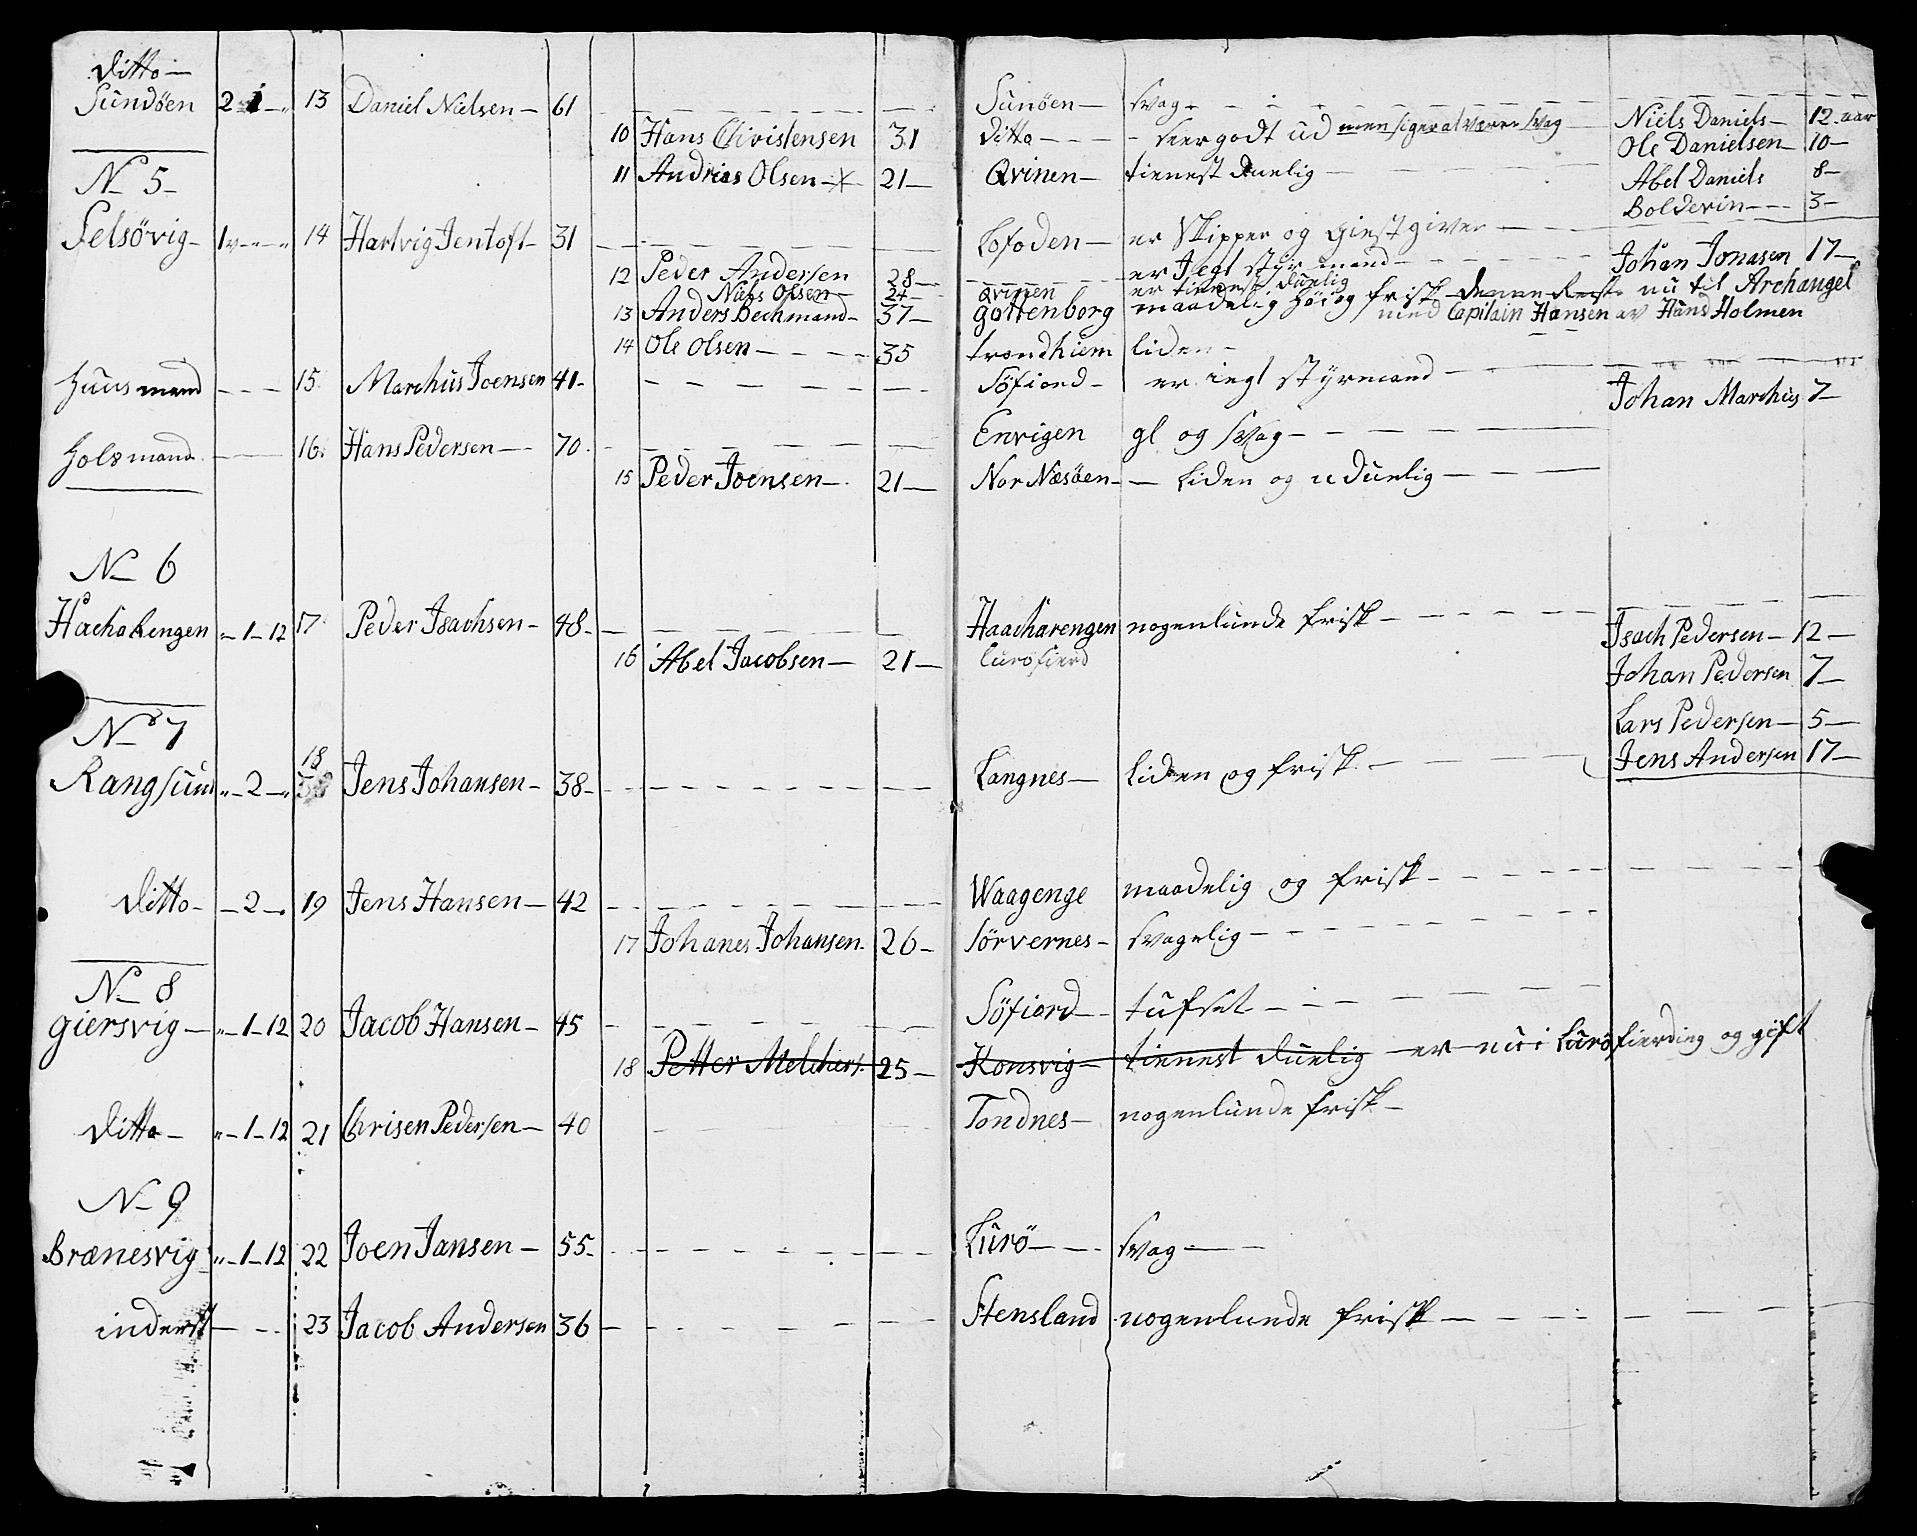 Ditto —
Sundöen 2 1 — 13 Daniel Nielsen — 61 Sunöen — svag — Niels Daniels — 12 aar
10 Hans Christensen 31 Ditto — seer godt ud men siger at være svag Ole Danielsen — 10 —
No 5 11 Andrias Olsen — 21 — Qvinen — tienest Duelig — Abel Daniels 8 —
Boldevin — 3 —
Selsövig — 1 14 Hartvig Jentoft — 31 Lofoden — er Skipper og Giestgiver — Johan Jonasen 17 —
12 Peder Andersen 28 — er Jegt styrmand —
Niels Olsen — 24 — Qvinen er tienest Duelig
13 Anders Bechmand — 37 — Gottenborg maadelig höi og frisk denne Reist nu til Archangel
med Capitain Hansen av Hans Holmen
14 Ole Olsen — 35 trondhiem liden —
Huusmand — 15 Marchus Joensen 41 — Söfiord — er iegt styrmand — Johan Marchus 7 —
Holsmand — 16 Hans Pedersen — 70 Envigen gl og svag —
15 Peder Joensen — 21 — Nor Næsöen — liden og uduelig —
No 6
Hacharengen — 1 — 12 17 Peder Isachsen — 48 — Haacharengen nogenlunde frisk — Isach Pedersen — 12 —
16 Abel Jacobsen — 21 — Luröfierd Johan Pedersen 7 —
No 7 Lars Pedersen — 5 —
Rangsund — 2 — 18 Jens Johansen — 38 — Langnes — liden og frisk — Jens Andersen 17 —
Ditto — 2 — 19 Jens Hansen — 42 Waagenge maadelig og frisk —
17 Johanes Johansen 26 — Sörvernes — svagelig —
No 8
Giersvig — 1 — 12 20 Jacob Hansen — 45 Söfiord — tufset —
18 Petter Melchers 25 — Konsvig — tienest Duelig — er nu i Luröfierding og gift
Ditto — 1 — 12 21 Chrisen Pedersen — 40 Tondnes — nogenlunde frisk —
No 9
Brænesvig — 1 — 12 22 Joen Jansen — 55 — Lurö — svag —
inderst — 23 Jacob Andersen 36 Stensland nogenlunde frisk —